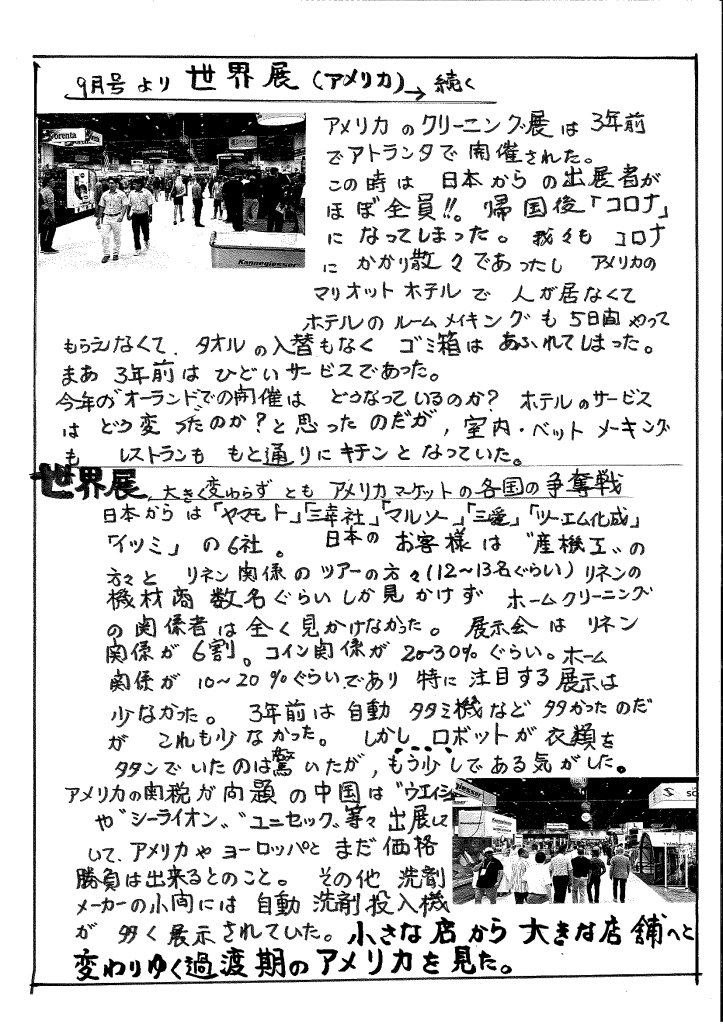 9月号より 世界展(アメリカ)→続く
アメリカのクリーニング展は3年前
でアトランタで開催された。
この時は 日本からの出展者が
ほぼ全員!!。帰国後「コロナ」
になってしまった。我々も コロナ
に かかり散々であったし アメリカの
マリオット ホテルで 人が居なくて
ホテルの ルームメイキングも 5日間 やって
もらえなくて、タオルの入替もなく ゴミ箱は あふれてしまった。
まあ 3年前は ひどいサービスであった。
今年の"オーランドでの開催は どうなっているのか? ホテルのサービス
は どう変ったのか?と思ったのだが, 室内・ベット メーキング
も レストランも もと通りにキチンとなっていた。
世界展, 大きく変わらず とも アメリカマーケットの各国の争奪戦
日本からは「ヤマモト」「三幸社」「マルソー」「三愛」「ツーエム化成」
「イツミ」の6社。 日本の お客様は "産機工"の
方々と リネン関係のツアーの方々(12~13名ぐらい)リネンの
機材商 数名ぐらいしか見かけず ホームクリーニング
の関係者は全く見かけなかった。展示会は リネン
関係が 6割。コイン関係が 20~30%ぐらい。ホーム
関係が 10~20%ぐらいであり 特に注目する展示は
少なかった。 3年前は自動 タタミ機など 多かったのだ
が これも少なかった。 しかし ロボットが衣類を
タタンでいたのは驚いたが, もう少しである気がした。
アメリカの関税が問題の中国は"ウエイシ
や"シーライオン、"ユニセック、等々 出展して
いて、アメリカや ヨーロッパと まだ価格
勝負は出来るとのこと。 その他 洗剤
メーカーの小間には 自動 洗剤投入機
が 多く展示されていた。小さな店から大きな店舗へと
変わりゆく過渡期のアメリカを見た。
Kannegiesser